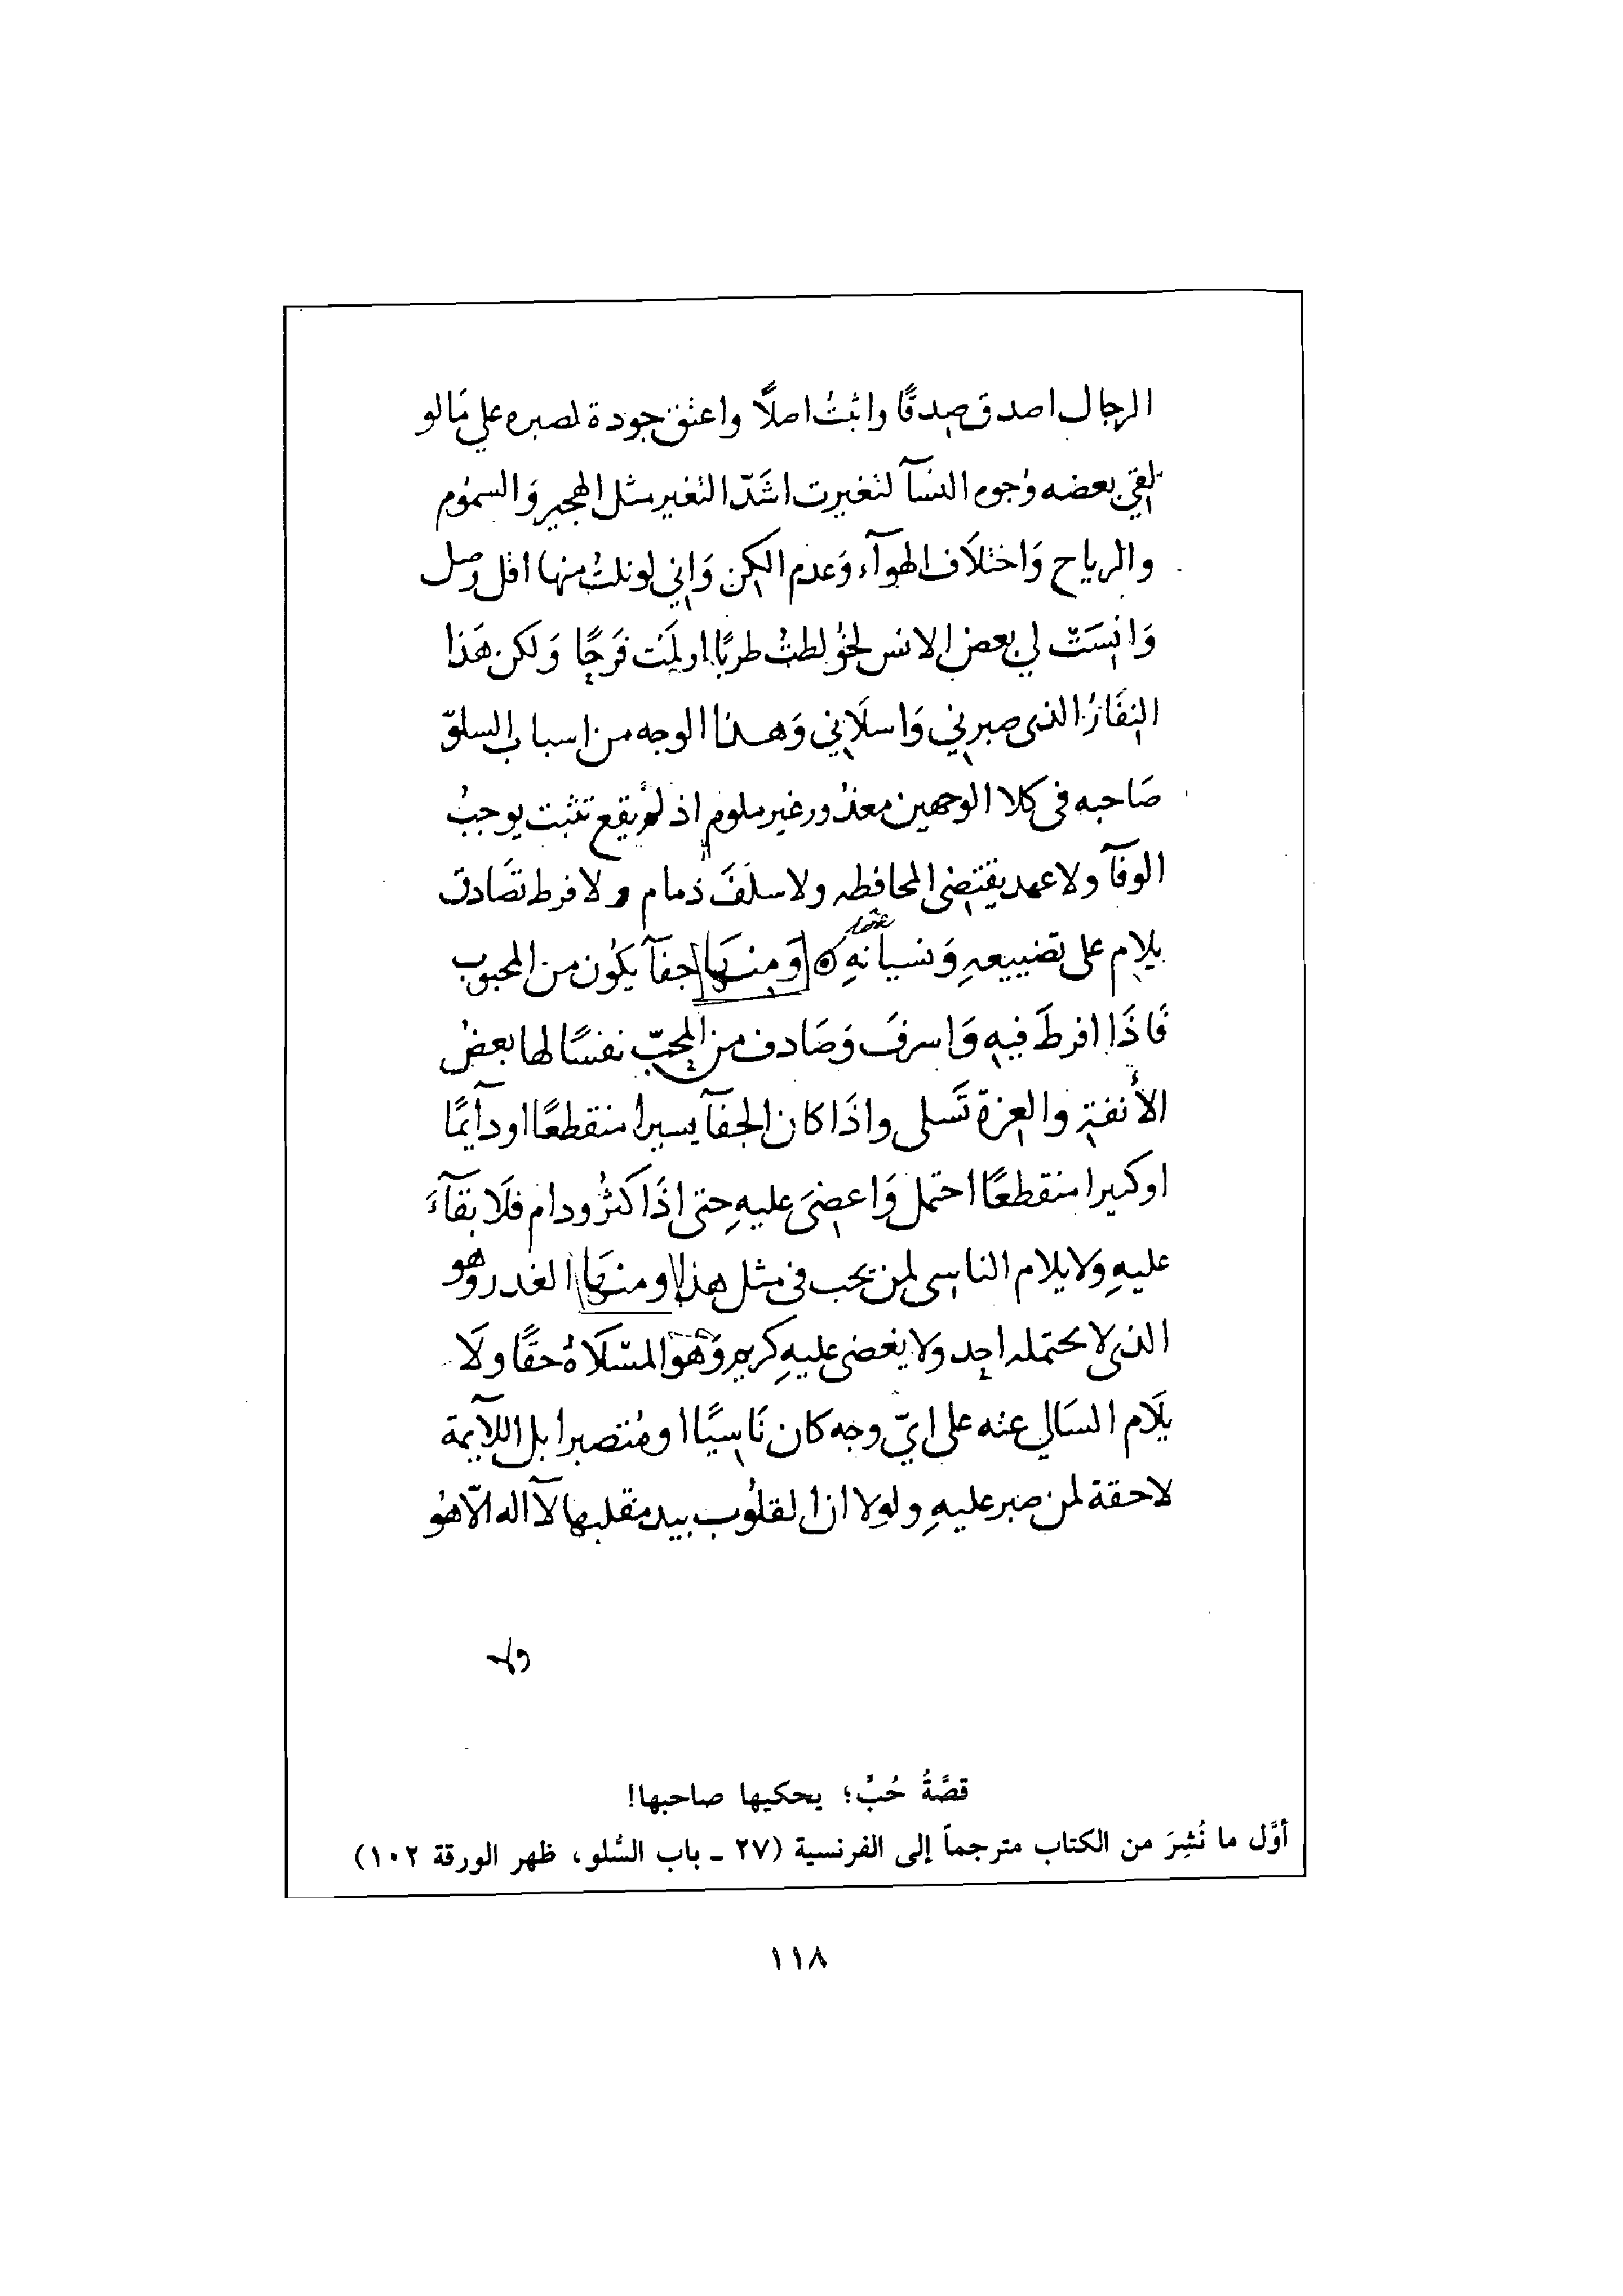 الرجال اصدق صدقًا واثبتُ اصلًا واعتق جودة لصبره على مَا لو
لقى بعضه وُجوه النسآ لتغيرت اشَدّ التغير مثل الهجير وَالسموُم
والرياح وَاختلاَف الهوآء وَعدم الكِن وَاني لو نلتُ منها اقل وصل
وَانِسَتْ لي بعض الانس لخوُلطتُ طربًا اولمَتُ فَرحًا وَلكن هَذا
النِفَارُ الذى صبرني وَاسلاَني وَهذا الوجه من اسباب السلوّ
صَاحبه فى كلا الوجهين معذُور غير ملوم اذ لم يقع تثبت يوجبُ
الوفآ ولا عهد يقتضى المحافظه ولا سلفَ ذمام ولا فرط تصَادق
يلام على تضييعهِ وَنسيانهِ وَمنهَا جفآ يكُون من المحبوب
فَاذَا افرطَ فيهِ وَاسرفَ وَصَادف من المحِبّ نفسًا لها بعضُ
الأنفة والعِزة تَسلى واذَا كان الجفآ يسيرا منقطعًا اودآيمًا
او كبيرا منقطعًا احتمل وَاغضىَ عليهِ حتى اذَا كثُر ودام فلَا بقآءَ
عليهِ ولا يلام الناسى لمن يحب فى مثل هذا ومنهَا الغدر وَهو
الذى لا يحتمله احد ولا يغضى عليهِ كريم وَهوَ المسْلَاةُ حقًّا ولَا
يلَام السَالي عنه على ايّ وجه كان نَاسِيًا او مُتصبرا بل اللآيمة
لاحقة لمن صبر عليهِ ولولا ان القلوُب بيد مقلبها لآ اله الّا هُو
ولا
قصَّةُ حُبٍّ؛ يحكيها صاحبها!
أوَّل ما نُشِرَ من الكتاب مترجماً إلى الفرنسية (٢٧ ـ باب السُّلو، ظهر الورقة ١٠٢)
١١٨